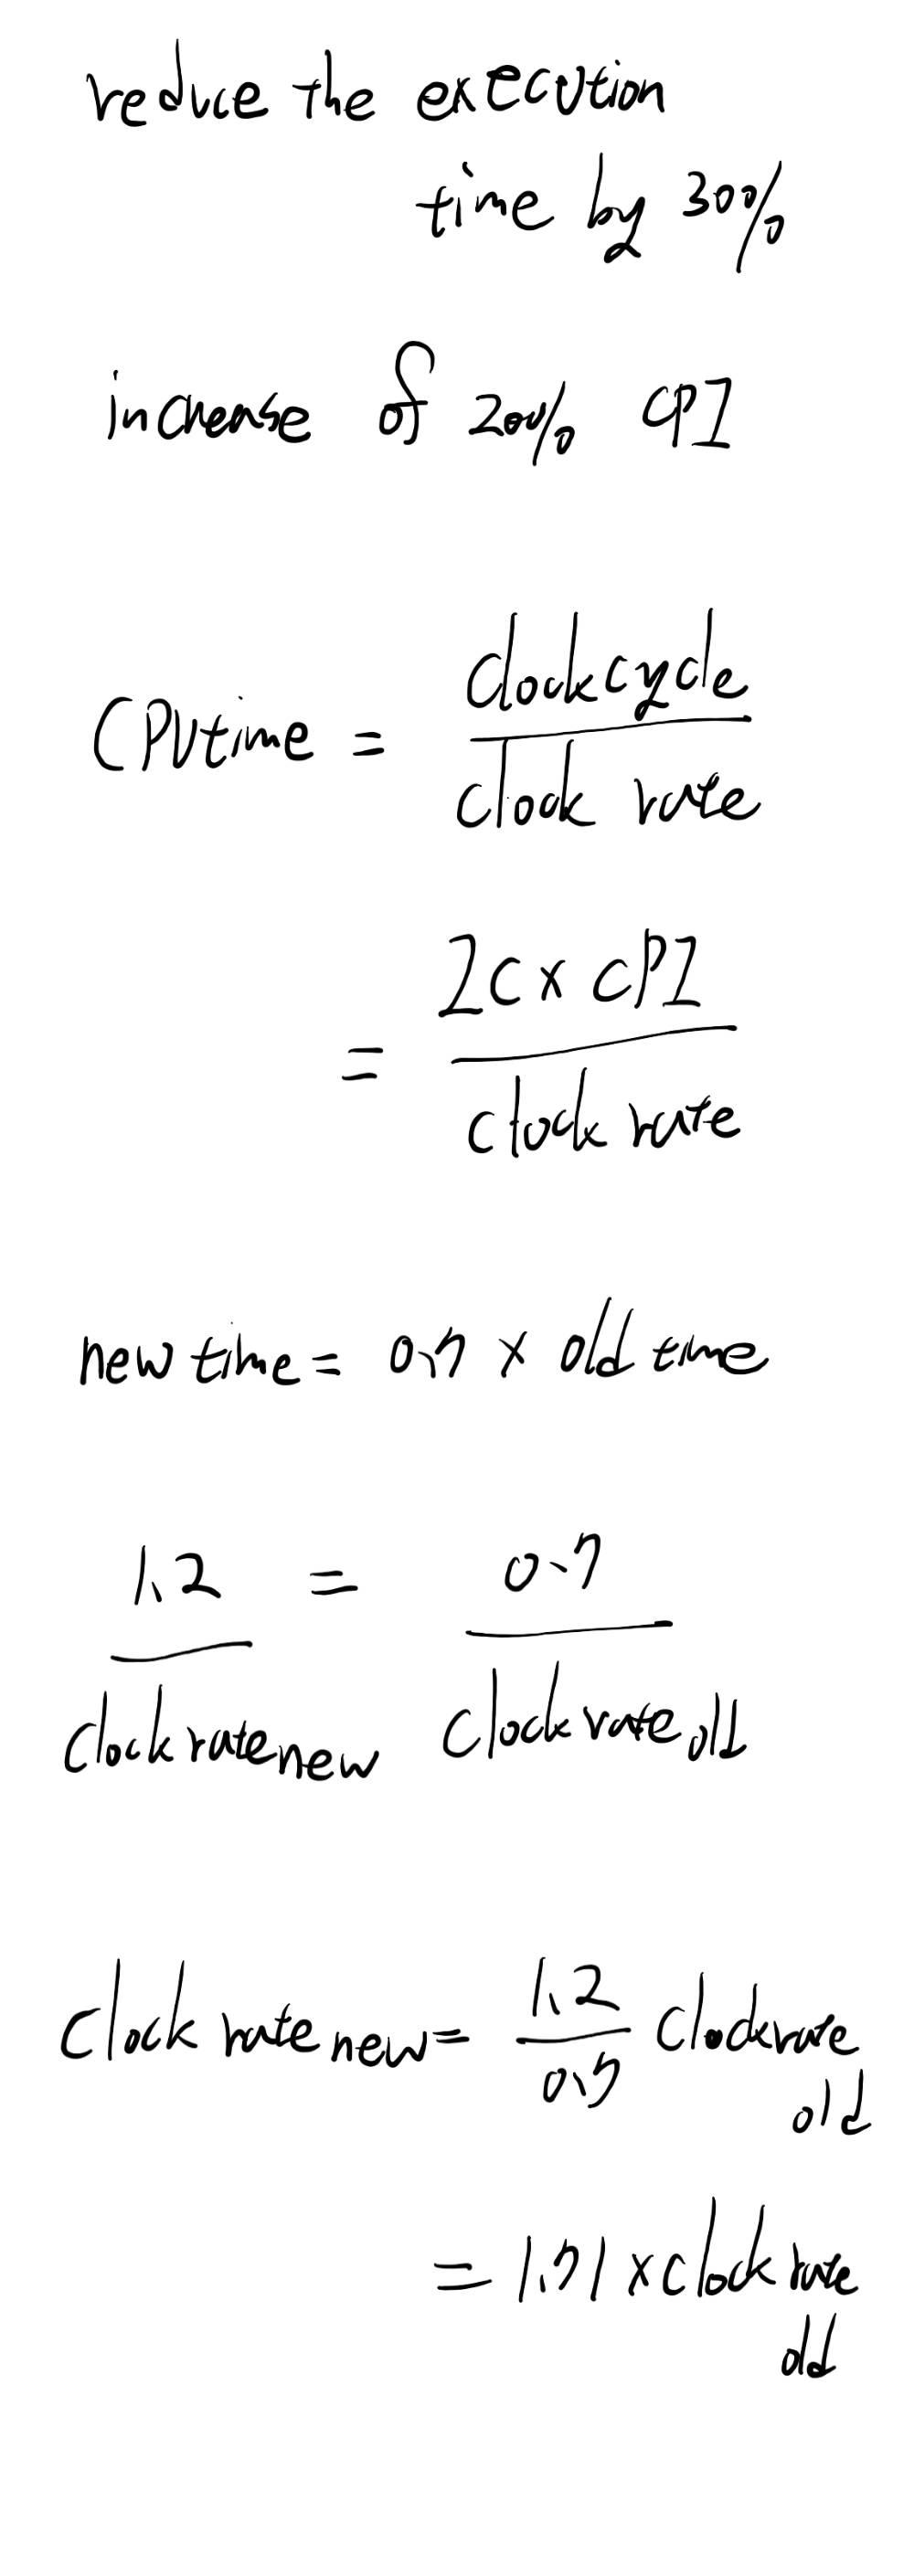 reduce the execution
time by 30%
increase of 20% CPI
CPUtime = clockcycle
clock rate
= IC x CPI
clock rate
new time = 0.7 x old time
1.2 = 0.7
clock rate new clock rate old
clock rate new = 1.2 clock rate
0.7 old
= 1.71 x clock rate
old